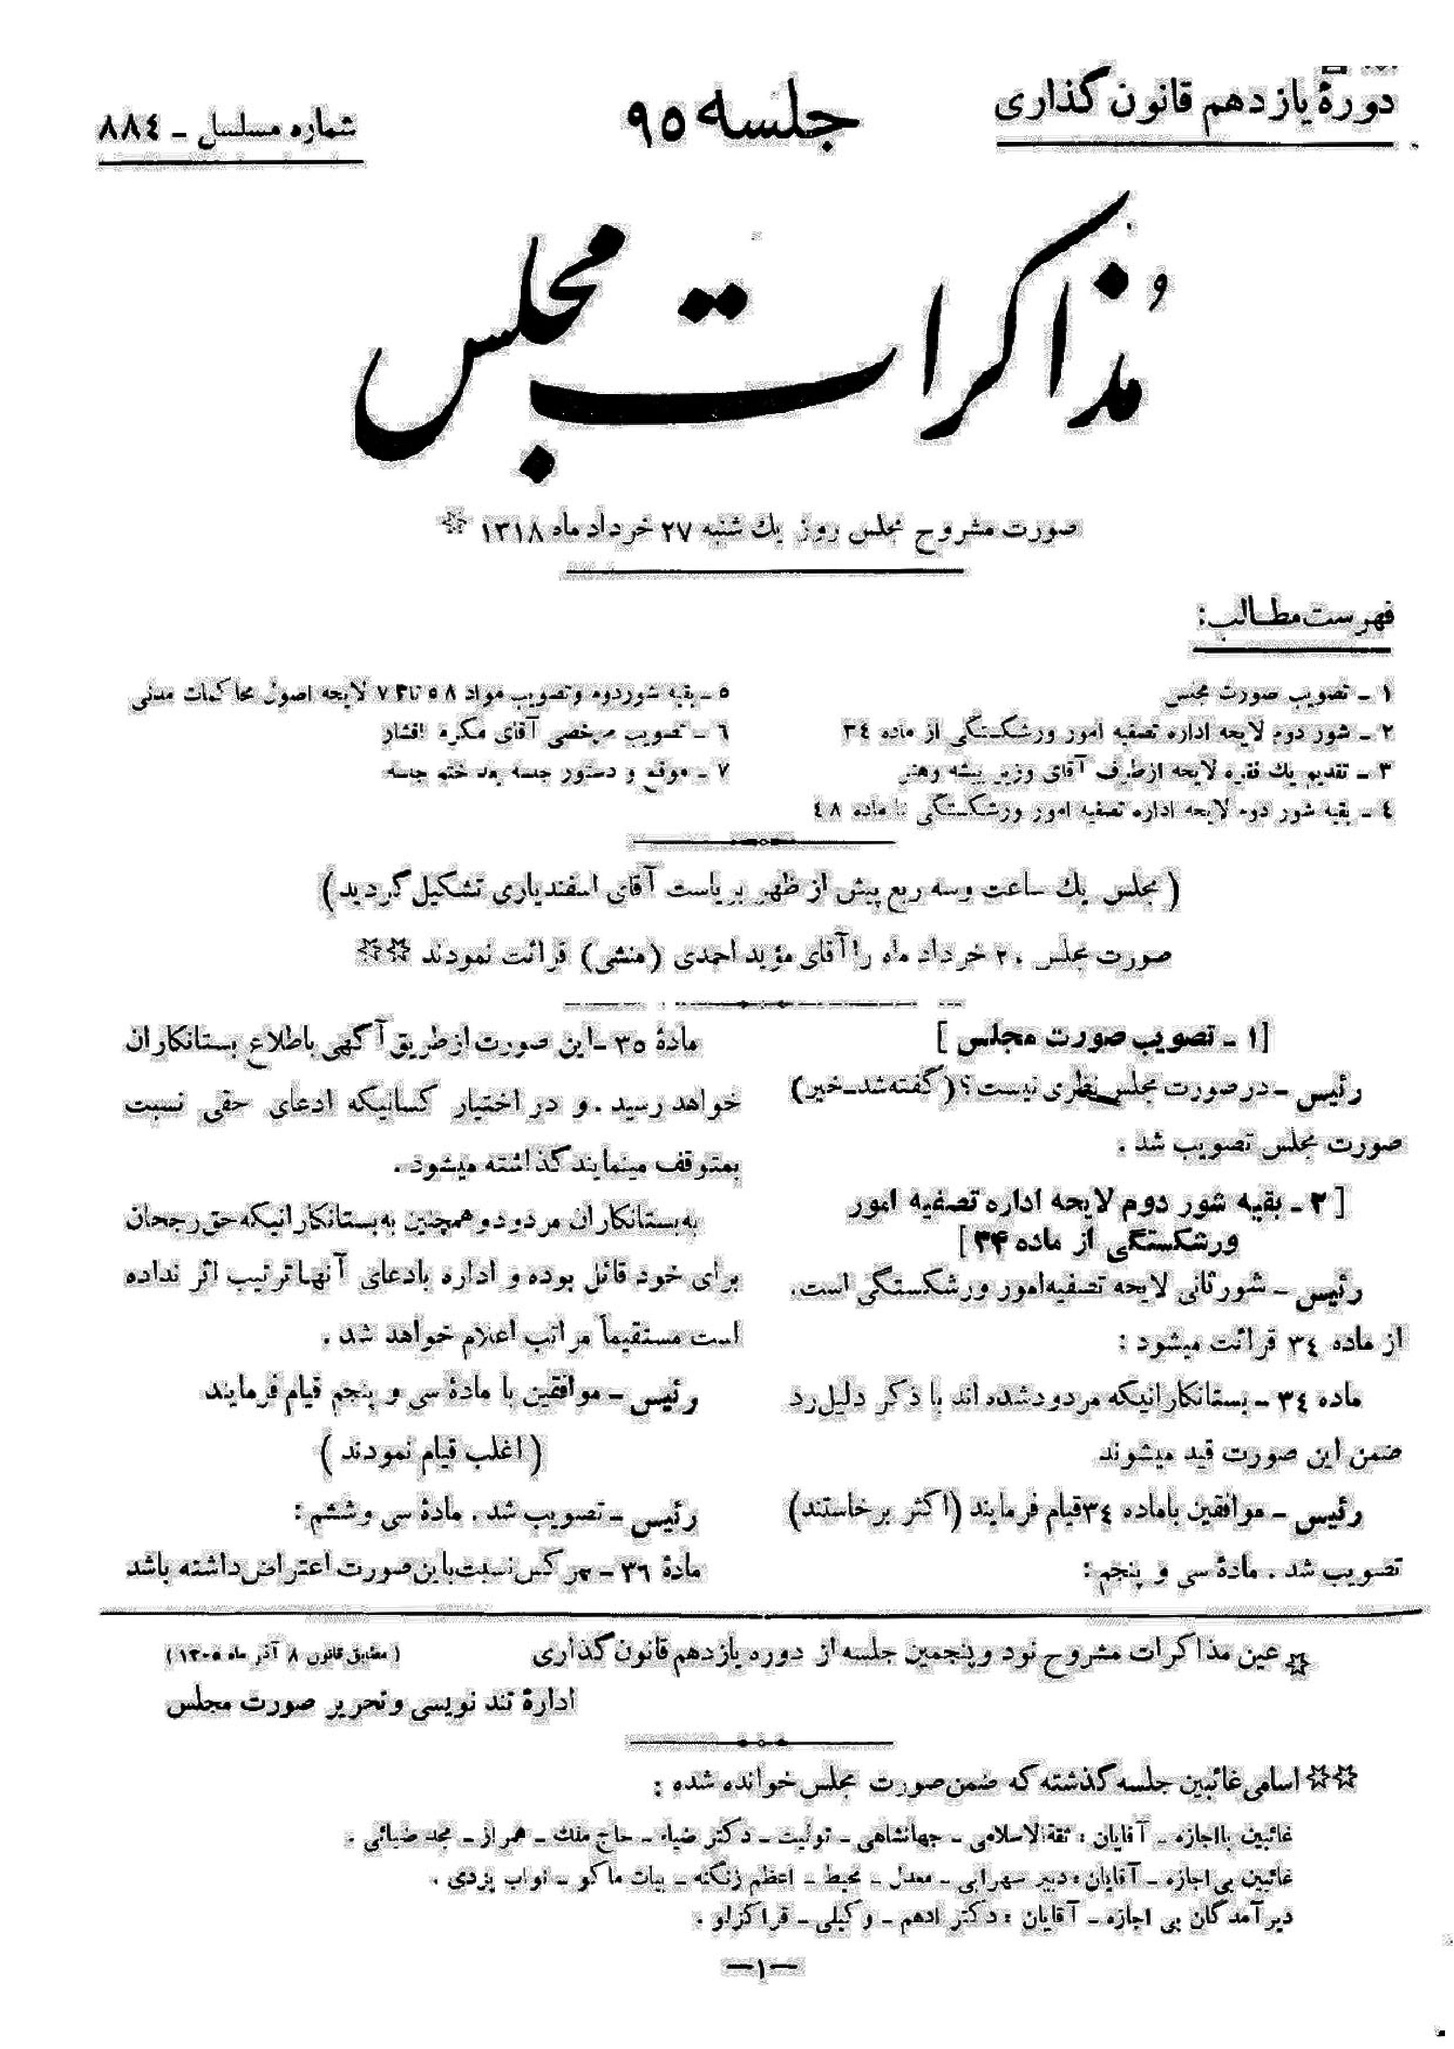 دورهٔ یازدهم قانون گذاری
جلسه ۹۵
شماره مسلسل ـ ۸۸٤
مُذاکرات مجلس
صورت مشروح مجلس روز یك شنبه ۲۷ خرداد ماه ۱۳۱۸ ☆
فهرست مطالب:
۱ ـ تصویب صورت مجلس
۲ ـ شور دوم لایحه اداره تصفیه امور ورشکستگی از ماده ۳٤
۳ ـ تقدیم یك فقره لایحه از طرف آقای وزیر پیشه وهنر
٤ ـ بقیه شور دوم لایحه اداره تصفیه امور ورشکستگی تا ماده ٤۸
۵ ـ بقیه شور دوم وتصویب مواد ۵۸ تا ۷۳ لایحه اصول محاکمات مدنی
٦ ـ تصویب مرخصی آقای مکرم افشار
۷ ـ موقع و دستور جلسه بعد ختم جلسه
( مجلس یك ساعت وسه ربع پیش از ظهر بریاست آقای اسفندیاری تشکیل گردید)
صورت مجلس ۲۰ خرداد ماه را آقای مؤید احمدی (منشی) قرائت نمودند ☆☆
[۱ ـ تصویب صورت مجلس ]
رئیس ـ در صورت مجلس نظری نیست؟ (گفته شد ـ خیر)
صورت مجلس تصویب شد .
[ ۲ ـ بقیه شور دوم لایحه اداره تصفیه امور
ورشکستگی از ماده ۳۴ ]
رئیس ـ شور ثانی لایحه تصفیه امور ورشکستگی است.
از ماده ۳٤ قرائت میشود :
ماده ۳٤ ـ بستانکارانیکه مردود شده اند با ذکر دلیل رد
ضمن این صورت قید میشوند
رئیس ـ موافقین باماده ۳٤ قیام فرمایند (اکثر برخاستند)
تصویب شد . مادهٔ سی و پنجم :
مادهٔ ۳۵ ـ این صورت از طریق آگهی باطلاع بستانکاران
خواهد رسید . و در اختیار کسانیکه ادعای حقی نسبت
بمتوقف مینمایند گذاشته میشود .
به بستانکاران مردود و همچنین به بستانکارانیکه حق رجحان
برای خود قائل بوده و اداره بادعای آنها ترتیب اثر نداده
است مستقیماً مراتب اعلام خواهد شد .
رئیس ـ موافقین با مادهٔ سی و پنجم قیام فرمایند
( اغلب قیام نمودند )
رئیس ـ تصویب شد . مادهٔ سی وششم :
مادهٔ ۳٦ ـ هر کس نسبت باین صورت اعتراض داشته باشد
☆ عین مذاکرات مشروح نود و پنجمین جلسه از دوره یازدهم قانون گذاری
( مطابق قانون ۸ آذر ماه ۱۳۰۵ )
ادارهٔ تند نویسی و تحریر صورت مجلس
☆☆ اسامی غائبین جلسه گذشته که ضمن صورت مجلس خوانده شده :
غائبین بااجازه ـ آقایان : ثقةالاسلامی ـ جهانشاهی ـ تولیت ـ دکتر ضیاء ـ حاج ملك ـ همراز ـ مجد ضیائی .
غائبین بی اجازه ـ آقایان : دبیر سهرابی ـ معدل ـ محیط ـ اعظم زنگنه ـ بیات ماکو ـ نواب یزدی .
دیرآمدگان بی اجازه ـ آقایان : دکتر ادهم ـ وکیلی ـ قراگزلو .
—۱—